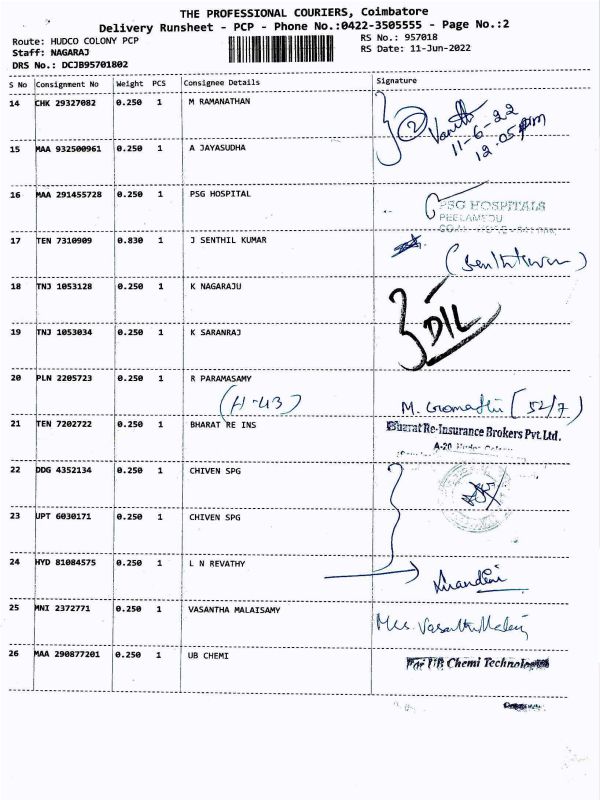 THE PROFESSIONAL COURIERS, Coimbatore
Delivery Runsheet - PCP - Phone No.:0422-3505555 - Page No.:2
Route: HUDCO COLONY PCP
RS No.: 957018
Staff: NAGARAJ
RS Date: 11-Jun-2022
DRS No.: DCJB95701802
S No Consignment No Weight PCS Consignee Details Signature
14 CHK 29327082 0.250 1 M RAMANATHAN
2
11-6-22
12.05 pm
15 MAA 932500961 0.250 1 A JAYASUDHA
16 MAA 291455728 0.250 1 PSG HOSPITAL
PSG HOSPITALS
PEELAMEDU
17 TEN 7310909 0.830 1 J SENTHIL KUMAR
18 TNJ 1053128 0.250 1 K NAGARAJU
D/L
19 TNJ 1053034 0.250 1 K SARANRAJ
20 PLN 2205723 0.250 1 R PARAMASAMY
(H-43) M. (52/7)
21 TEN 7202722 0.250 1 BHARAT RE INS
Bharat Re-Insurance Brokers Pvt. Ltd.
A-20
22 DDG 4352134 0.250 1 CHIVEN SPG
23 UPT 6030171 0.250 1 CHIVEN SPG
24 HYD 81084575 0.250 1 L N REVATHY
25 MNI 2372771 0.250 1 VASANTHA MALAISAMY
26 MAA 290877201 0.250 1 UB CHEMI
For UB Chemi Technologies